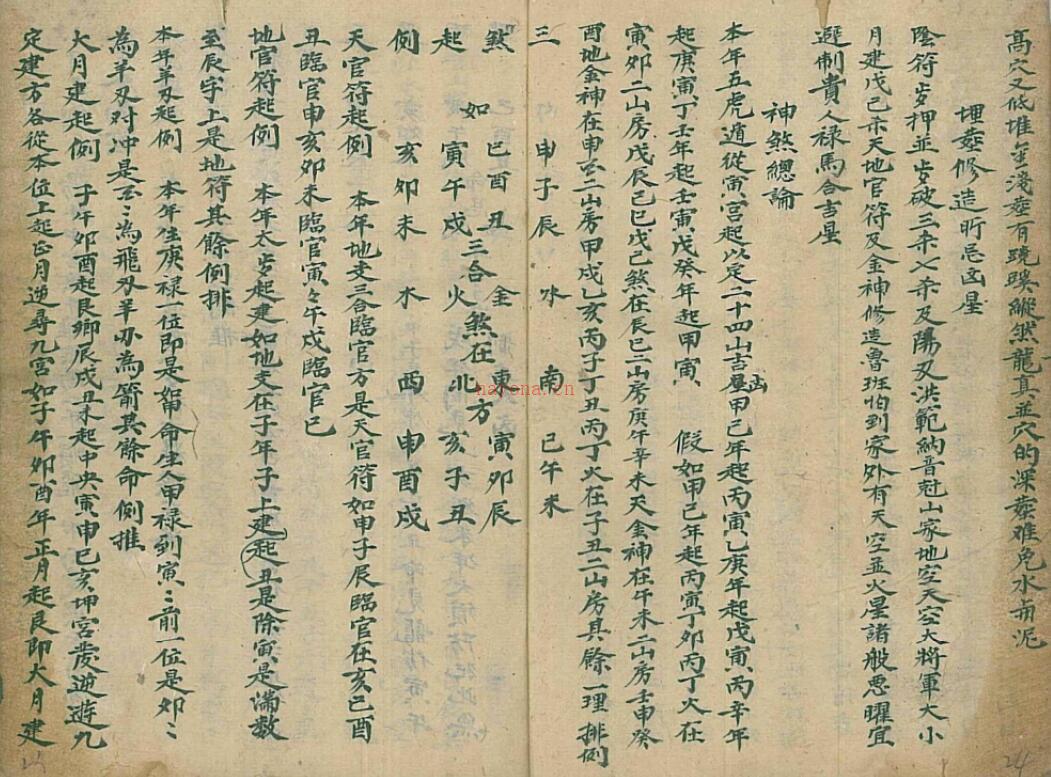 高穴又低堆金淺葬有蹺蹊縱然龍真並穴的深葬难免水而泥
埋葬修造所忌凶星
陰符岁押並岁破三杀七杀及陽刃洪範納音尅山家地空天空大将軍大小
月建戊己杀天地官符及金神修造魯班怕到家外有天空並火星諸般悪曜宜
避制貴人禄馬合吉星
神煞總論
本年五虎遁從寅宫起以定二十四山吉凶屬甲己年起丙寅乙庚年起戊寅丙辛年
起庚寅丁壬年起壬寅戊癸年起甲寅 假如甲己年起丙寅丁卯丙丁火在
寅卯二山房戊辰己巳戊己煞在辰巳二山房庚午辛未天金神在午未二山房壬申癸
酉地金神在申酉二山房甲戌乙亥丙子丁丑丙丁火在子丑二山房其餘一理排例
三 申子辰 水 南 巳午未
煞 如 巳酉丑 金 東 寅卯辰
三合 煞在 方
起 寅午戌 火 北 亥子丑
例 亥卯未 木 西 申酉戌
天官符起例 本年地支三合臨官方是天官符如申子辰臨官在亥巳酉
丑臨官申亥卯未臨官寅々午戌臨官巳
地官符起例 本年太岁起建如地支在子年子上建起丑是除寅是满数
至辰字上是地符其餘例排
本年羊刃起例 本年生庚禄前一位即是如甲命生人甲禄到寅〻前一位是卯〻
為羊刃对冲是酉〻為飛刃羊刃為箭其餘命例推
大月建起例 子午卯酉起艮鄉辰戌丑未起中央寅申巳亥坤宫發逆遊九
定建方各從本位上起正月逆尋九宫如子午卯酉年正月起艮即大月建
24
narona.cn